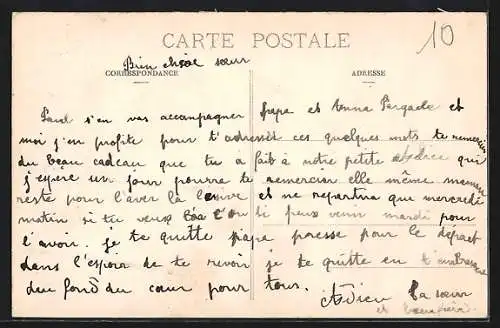 CARTE POSTALE
10
Bien chère sœur
CORRESPONDANCE
ADRESSE
Paul s'en vas accompagner papa et Anna Pergade et
moi j'en profite pour t'adresser ces quelques mots te remercier
du beau cadeau que tu à fait à notre petite qui
j'espère un jour pourra te remercier elle même maman
reste pour l'aver la lesive et ne repartira que mercredi
matin si tu veux l'ou di peux venir mardi pour
l'avoir. je te quitte papa presse pour le départ
dans l'espoir de te revoir je te quitte en t'embrassant
du fond du cœur pour tous. Adieu ta sœur
et